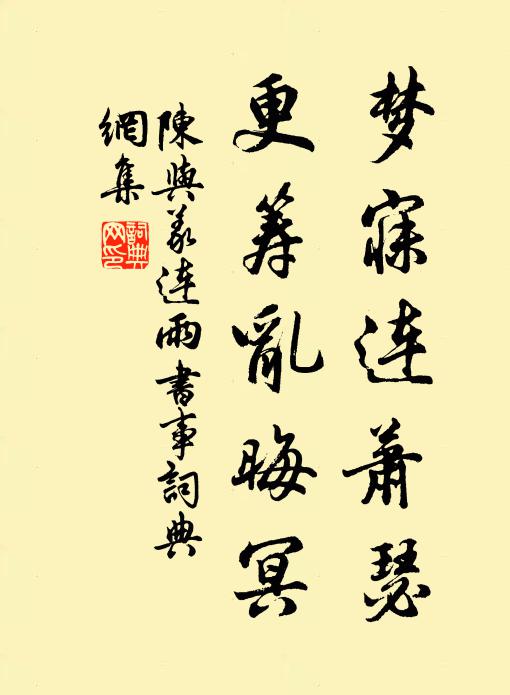 梦寐连萧瑟
更筹亂晦冥
陳與義連雨書事詞典
網集
詞典網印